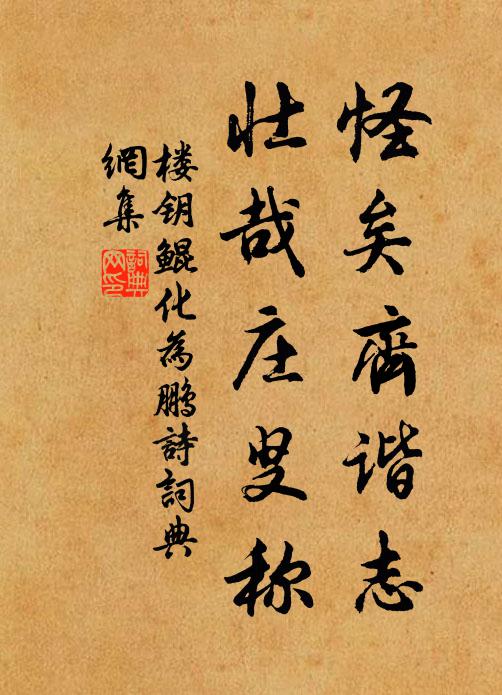 怪矣齊谐志
壮哉庄叟称
楼钥鲲化為鹏詩詞典
網集
詞典
网印